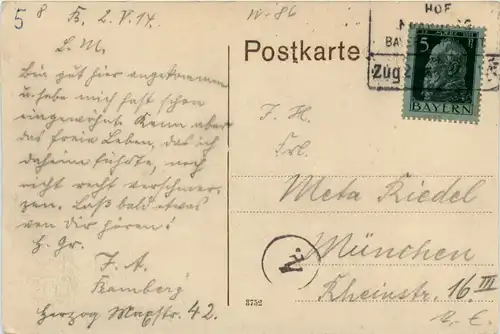 5
8 B. 2. V. 14.
L. M.
Bin gut hier angekommen
u. habe mich fast schon
eingewöhnt. Kann aber
das freie Leben, das ich
daheim führte, noch
nicht recht verschmer-
zen. Laß bald etwas
von Dir hören!
H. Gr.
F. A.
Bamberg
Herzog Maxstr. 42.
W-86
Postkarte
HOF
BAY
Zug
5
BAYERN
F. H.
Frl.
Meta Riedel
München
Rheinstr. 16 III
3752